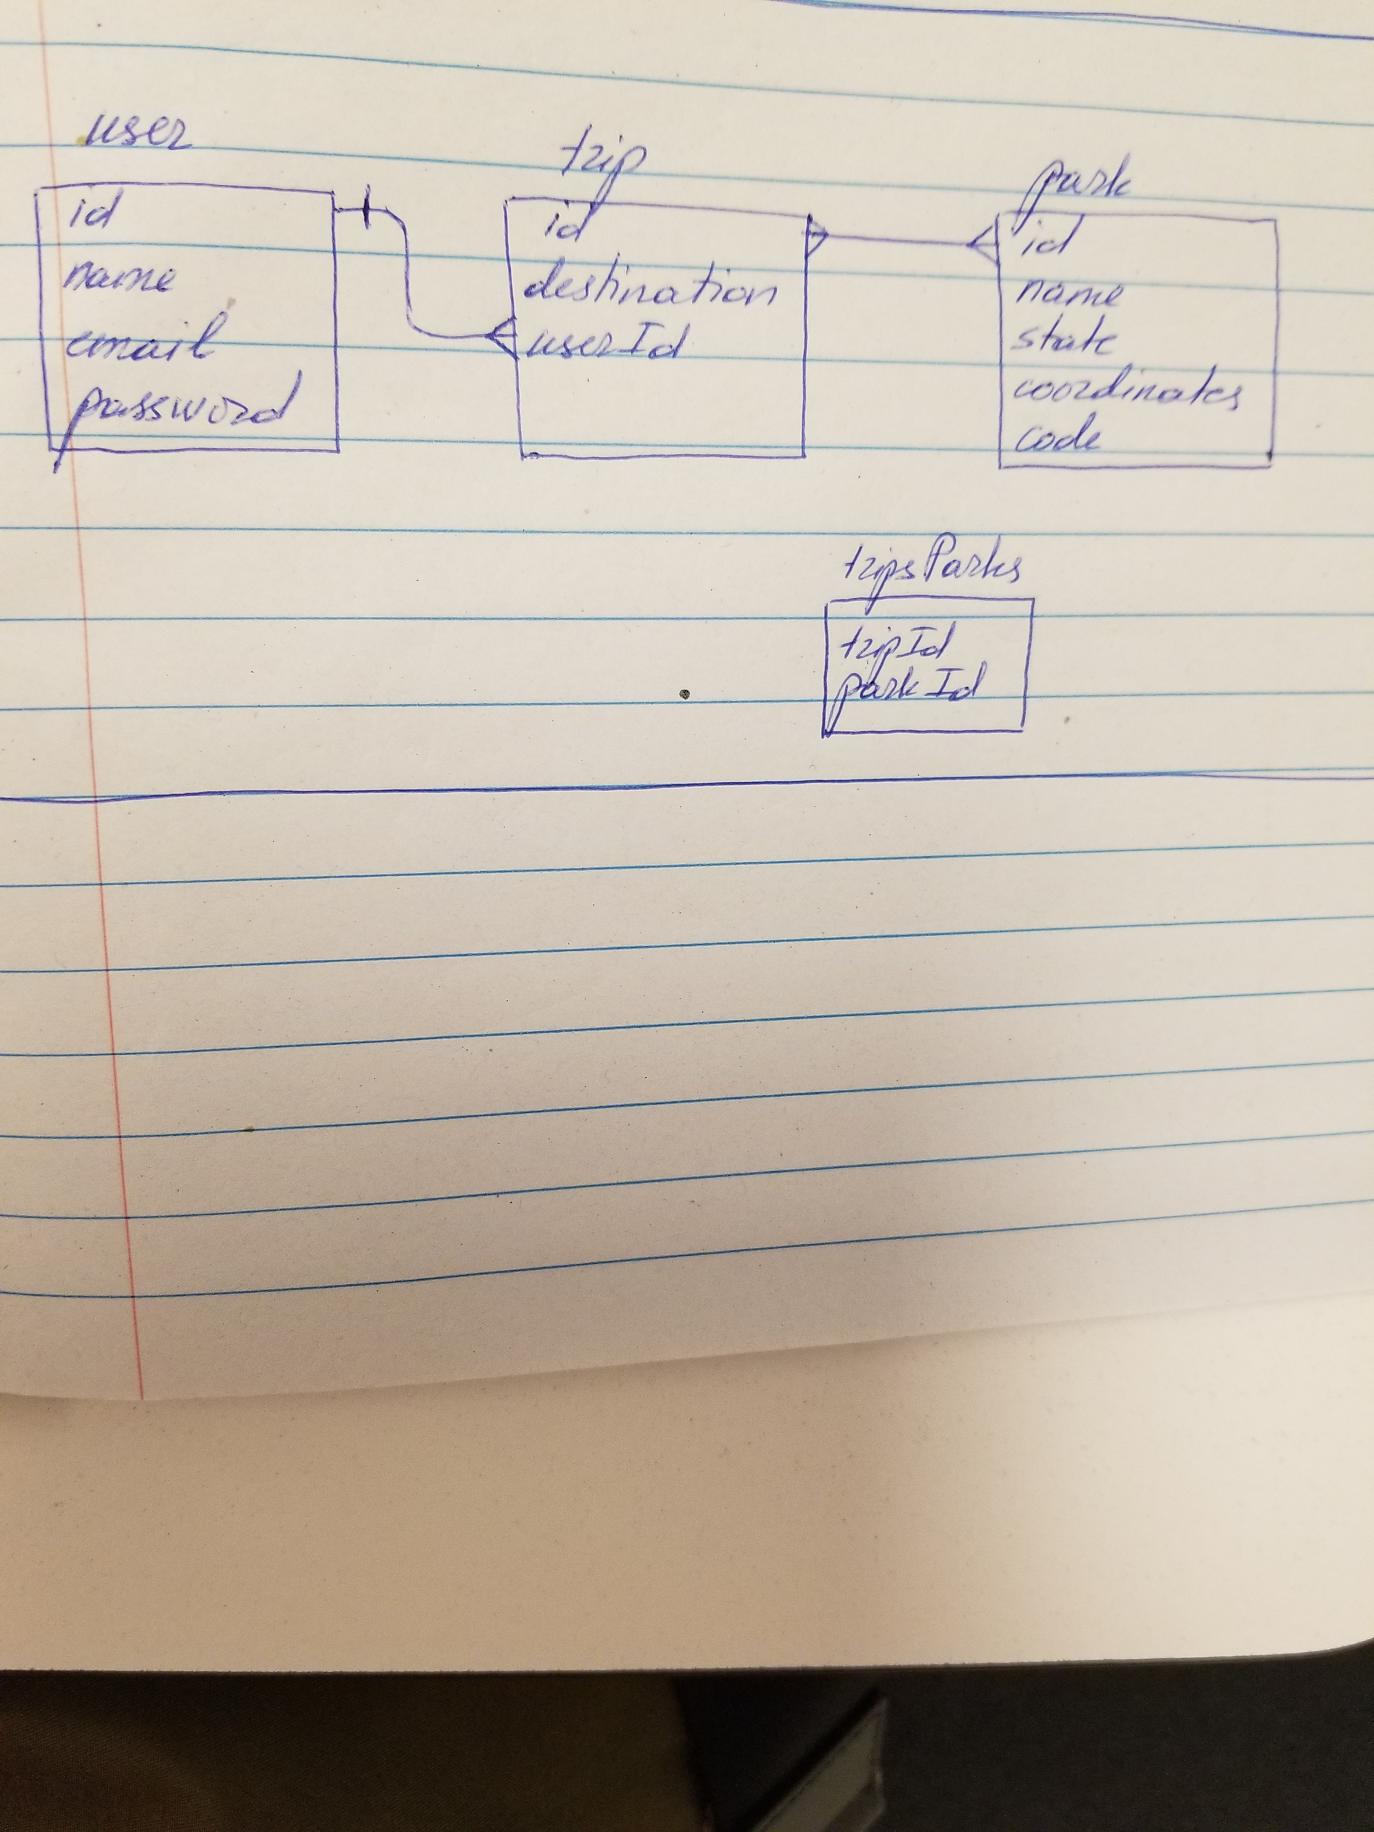 user
id
name
email
password
trip
id
destination
userId
park
id
name
state
coordinates
code
tripsParks
tripId
parkId